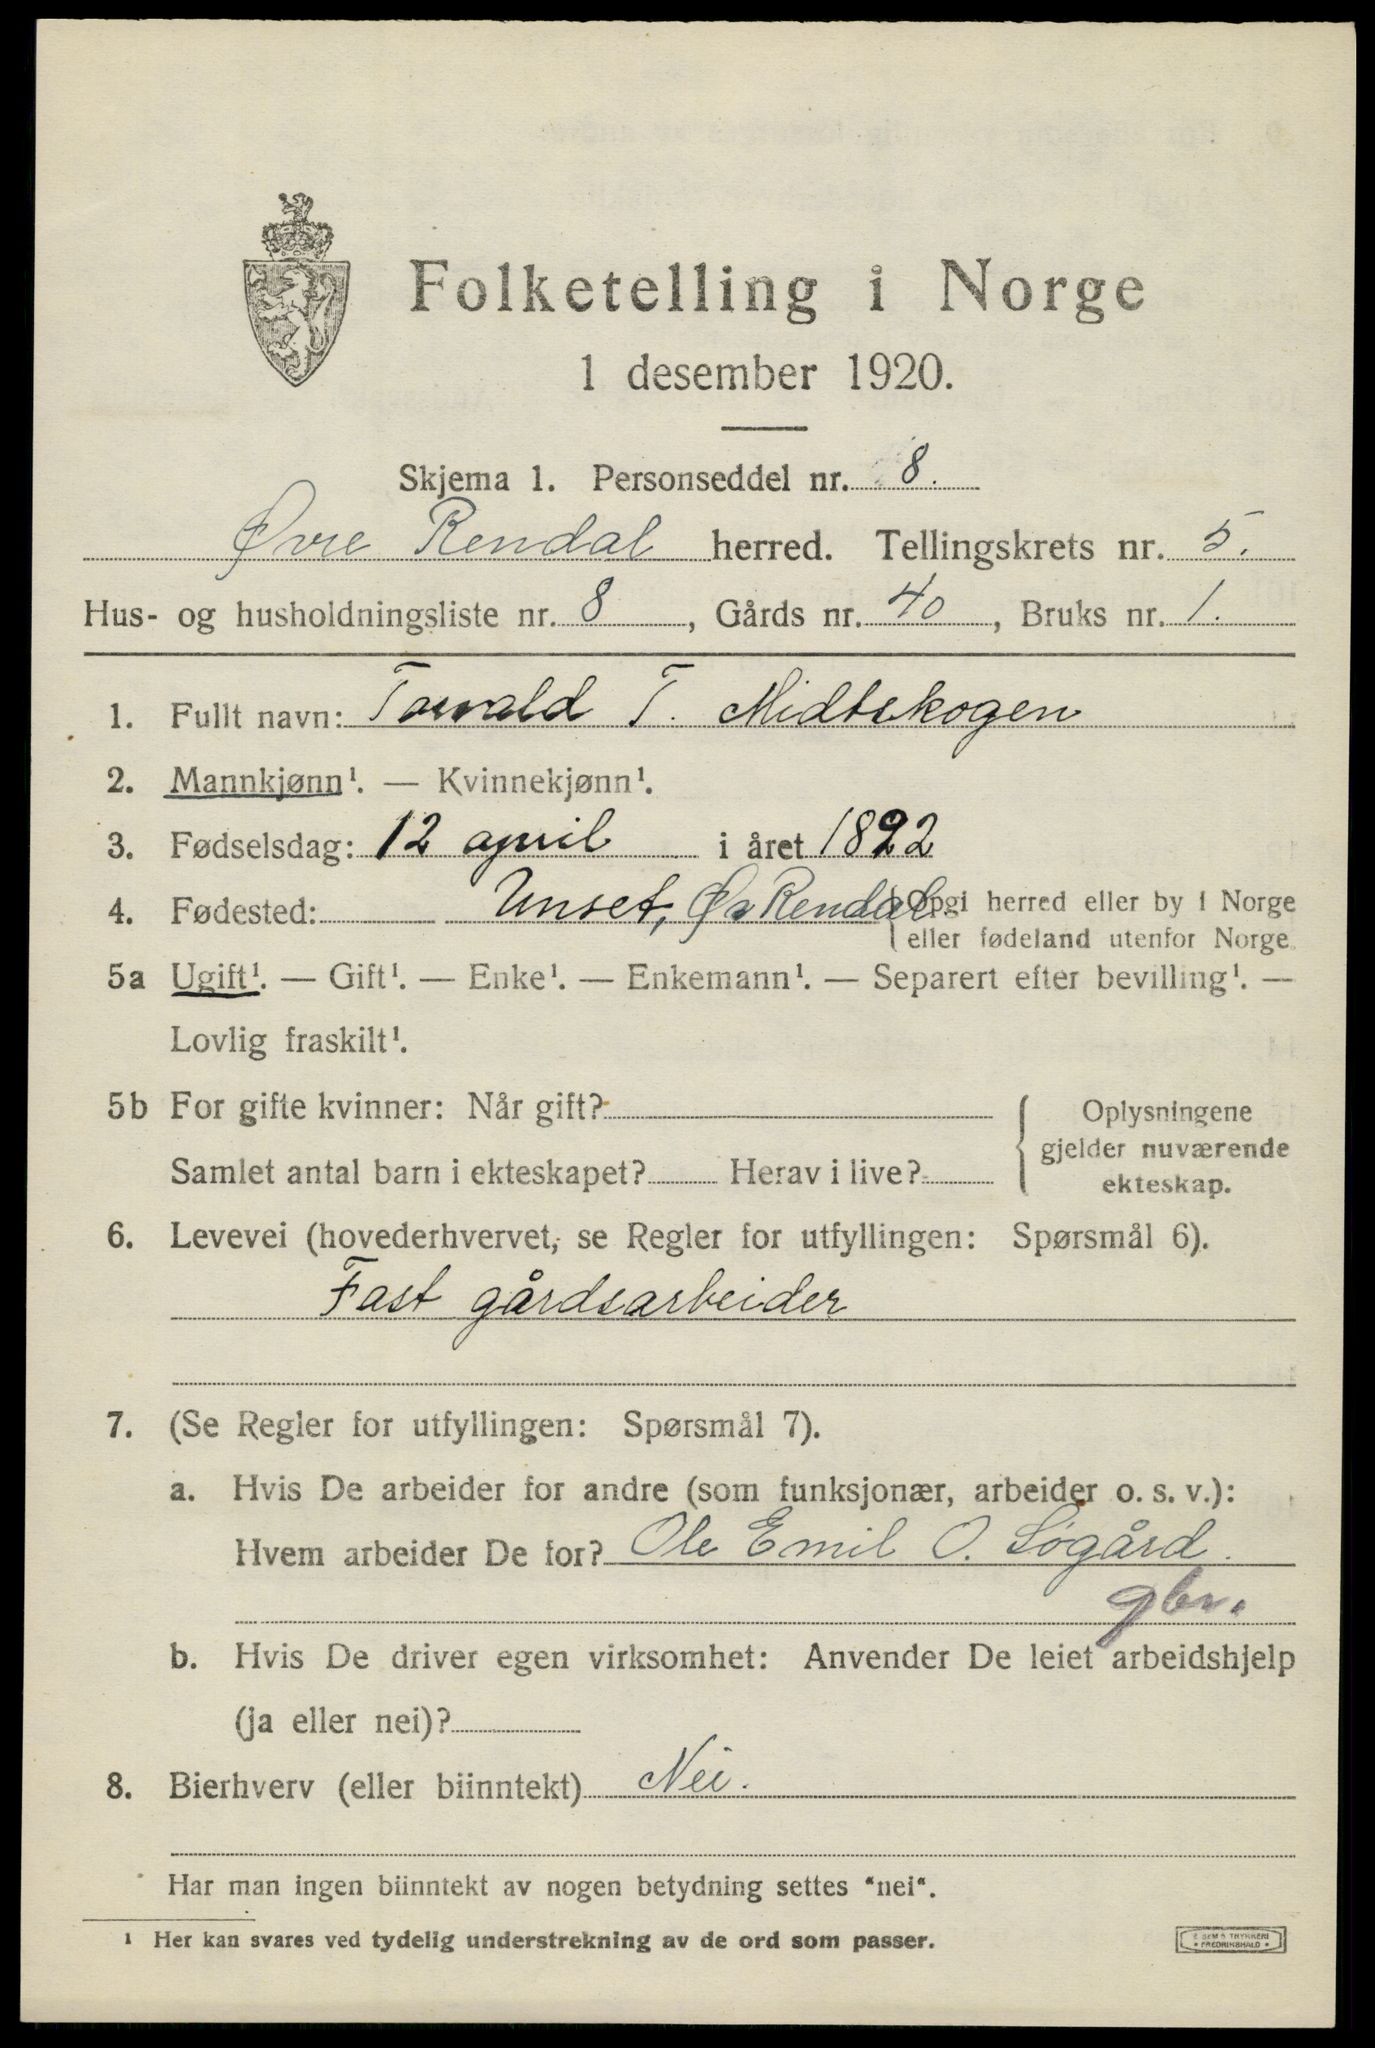 Folketelling i Norge
1 desember 1920.
Skjema 1. Personseddel nr. 8.
Øvre Rendal herred. Tellingskrets nr. 5.
Hus- og husholdningsliste nr. 8, Gårds nr. 40, Bruks nr. 1.
1. Fullt navn: Torvald T. Midtskogen
2. Mannkjønn¹. — Kvinnekjønn¹.
3. Fødselsdag: 12 april i året 1892
4. Fødested: Unset, Ø. Rendal {Opgi herred eller by i Norge
eller fødeland utenfor Norge
5a Ugift¹. — Gift¹. — Enke¹. — Enkemann¹. — Separert efter bevilling¹. —
Lovlig fraskilt¹.
5b For gifte kvinner: Når gift? { Oplysningene
gjelder nuværende
Samlet antal barn i ekteskapet? Herav i live?
ekteskap.
6. Levevei (hovederhvervet, se Regler for utfyllingen: Spørsmål 6).
Fast gårdsarbeider
7. (Se Regler for utfyllingen: Spørsmål 7).
a. Hvis De arbeider for andre (som funksjonær, arbeider o. s. v.):
Hvem arbeider De for? Ole Emil O. Søgård.
gbr.
b. Hvis De driver egen virksomhet: Anvender De leiet arbeidshjelp
(ja eller nei)?
8. Bierhverv (eller biinntekt) Nei.
Har man ingen biinntekt av nogen betydning settes "nei".
¹ Her kan svares ved tydelig understrekning av de ord som passer.
E. SEM'S TRYKKERI
• FREDRIKSHALD •